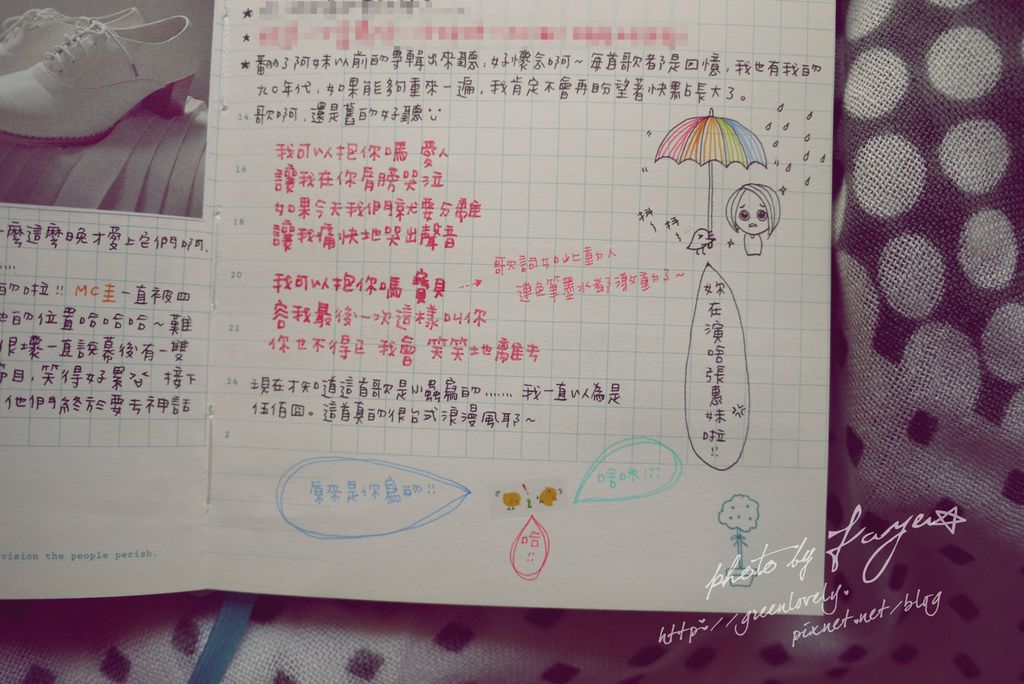 麼這麼晚才愛上它們啊.
......
的啦!! MC圭一直被四
他的位置哈哈哈~難
很壞一直誤幕後有一雙
節目,笑得好累 接下
他們終於要去神話
vision the people perish.
★
★
★ 翻了阿妹以前的專輯出來聽,好懷念啊~每首歌都是回憶,我也有我的
九0年代,如果能夠重來一遍,我肯定不會再盼望著快點長大了。
14 歌啊,還是舊的好聽
我可以抱你嗎 愛人
16 讓我在你肩膀哭泣
如果今天我們就要分離
18 讓我痛快地哭出聲音
20 我可以抱你嗎 寶貝
歌詞如此動人
連色筆墨水都激動了~
容我最後一次這樣叫你
22 你也不得已 我會 笑笑地離去
24 現在才知道這首歌是小蟲寫的...... 我一直以為是
伍佰囧。這首真的很台式浪漫風耶~
2
抖 抖
妳在演啥張惠妹啦!!
原來是你寫的!!
啥咪!!!
哈!!
photo by Faye
http://greenlovely.
pixnet.net/blog